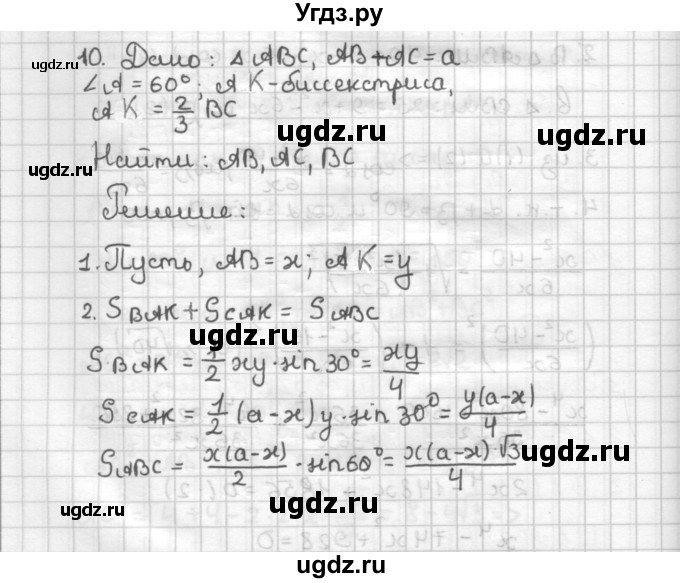 Угдз.ру
10. Дано: △ABC, AB+AC=a
∠A=60°; AK-биссектриса,
AK = 2/3 BC
ugdz.ru
ugdz.ru
ugdz.ru
Найти: AB, AC, BC
Решение:
1. Пусть, AB=x; AK=y
2. S BAK + S CAK = S ABC
ugdz.ru
S BAK = 1/2 xy·sin 30° = xy/4
S CAK = 1/2 (a-x) y·sin 30° = y(a-x)/4
ugdz.ru
S ABC = x(a-x)/2 · sin 60° = x(a-x)·√3/4
ugdz.ru
ugdz.ru
x⁴-74x+928=0
Угдз.ру